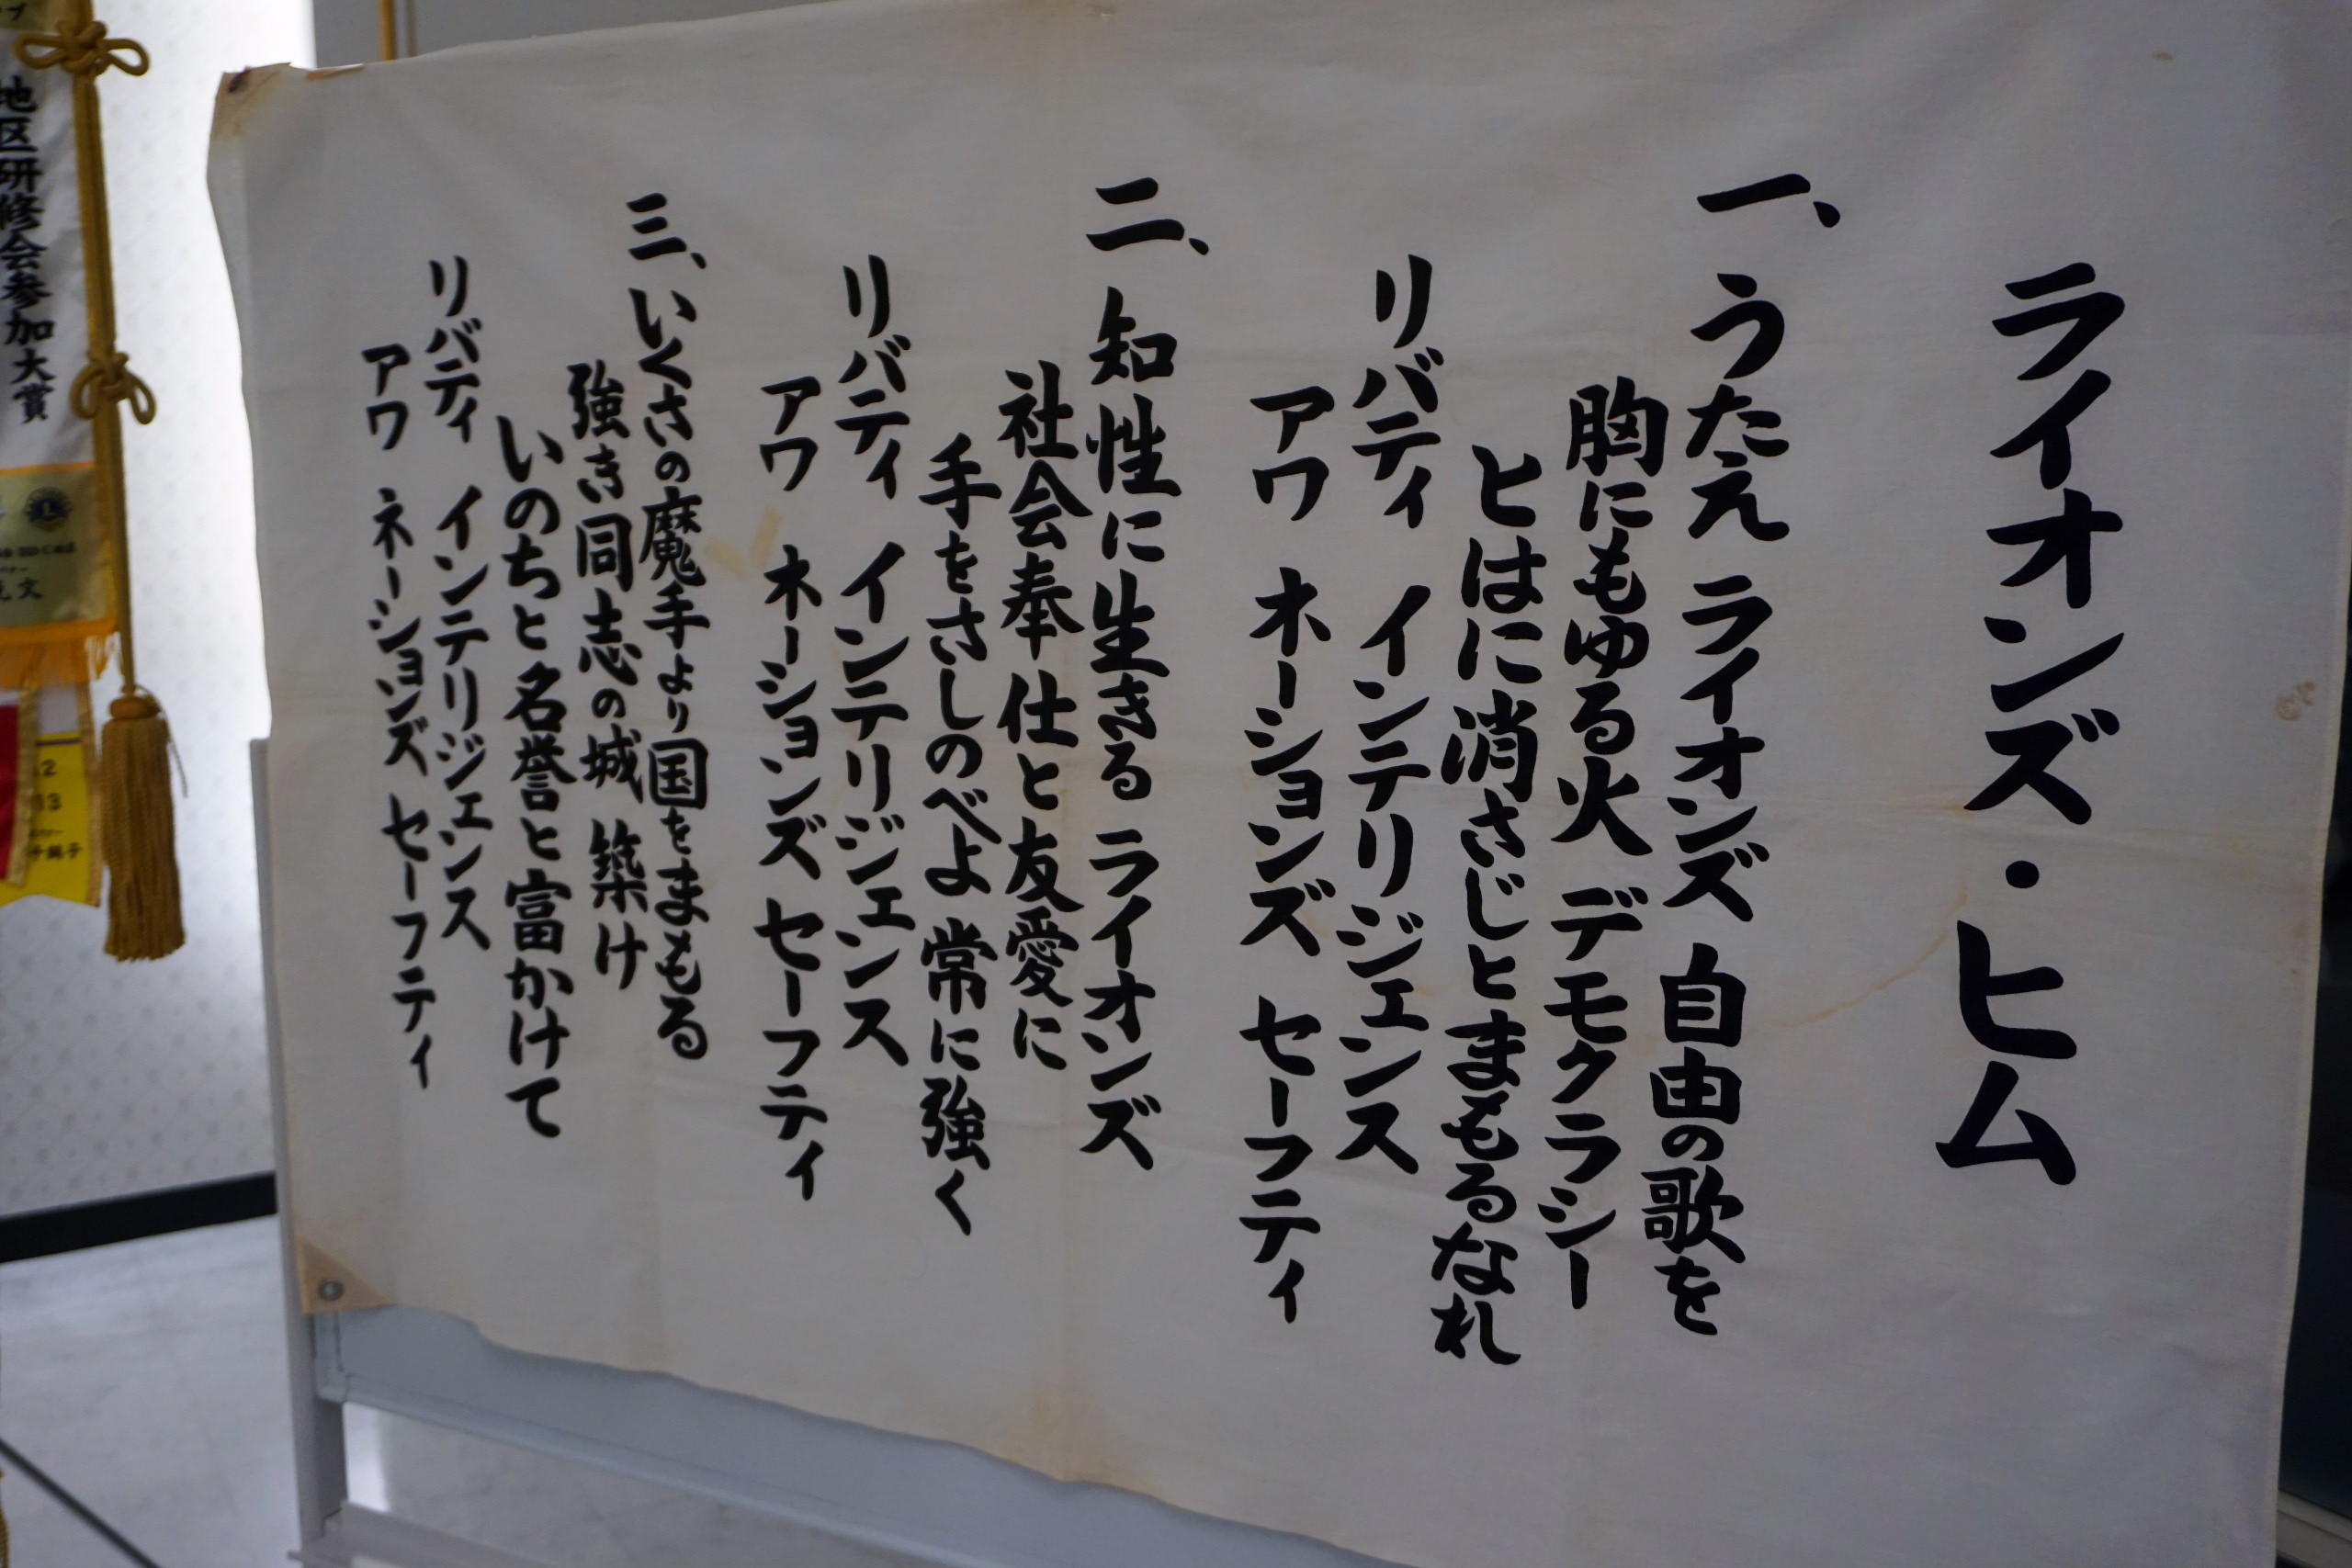 ライオンズ・ヒム
一、うたえ ライオンズ 自由の歌を
胸にもゆる火 デモクラシー
とはに消さじとまもるなれ
リバティ インテリジェンス
アワ ネーションズ セーフティ
二、知性に生きる ライオンズ
社会奉仕と友愛に
手をさしのべよ 常に強く
リバティ インテリジェンス
アワ ネーションズ セーフティ
三、いくさの魔手より国をまもる
強き同志の城 築け
いのちと名誉と富かけて
リバティ インテリジェンス
アワ ネーションズ セーフティ
地区研修会参加大賞